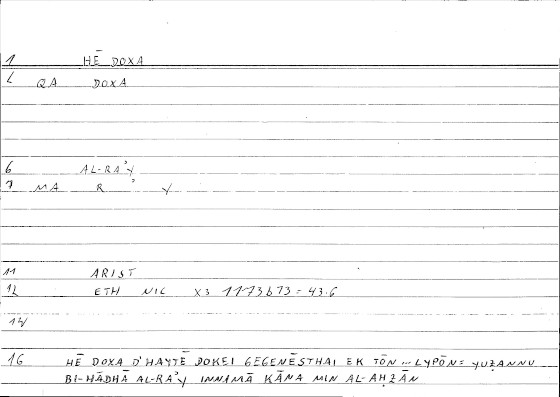 1 HĒ DOXA
2 QA DOXA
6 AL-RAʾY
7 MA R ʾ Y
11 ARIST
12 ETH NIC X3 1173b73 = 43.6
14
16 HĒ DOXA D'HAYTĒ DOKEI GEGENĒSTHAI EK TŌN ... LYPŌN = YUẒANNU
BI-HĀDHĀ AL-RAʾY INNAMĀ KĀNA MIN AL-AḤZĀN